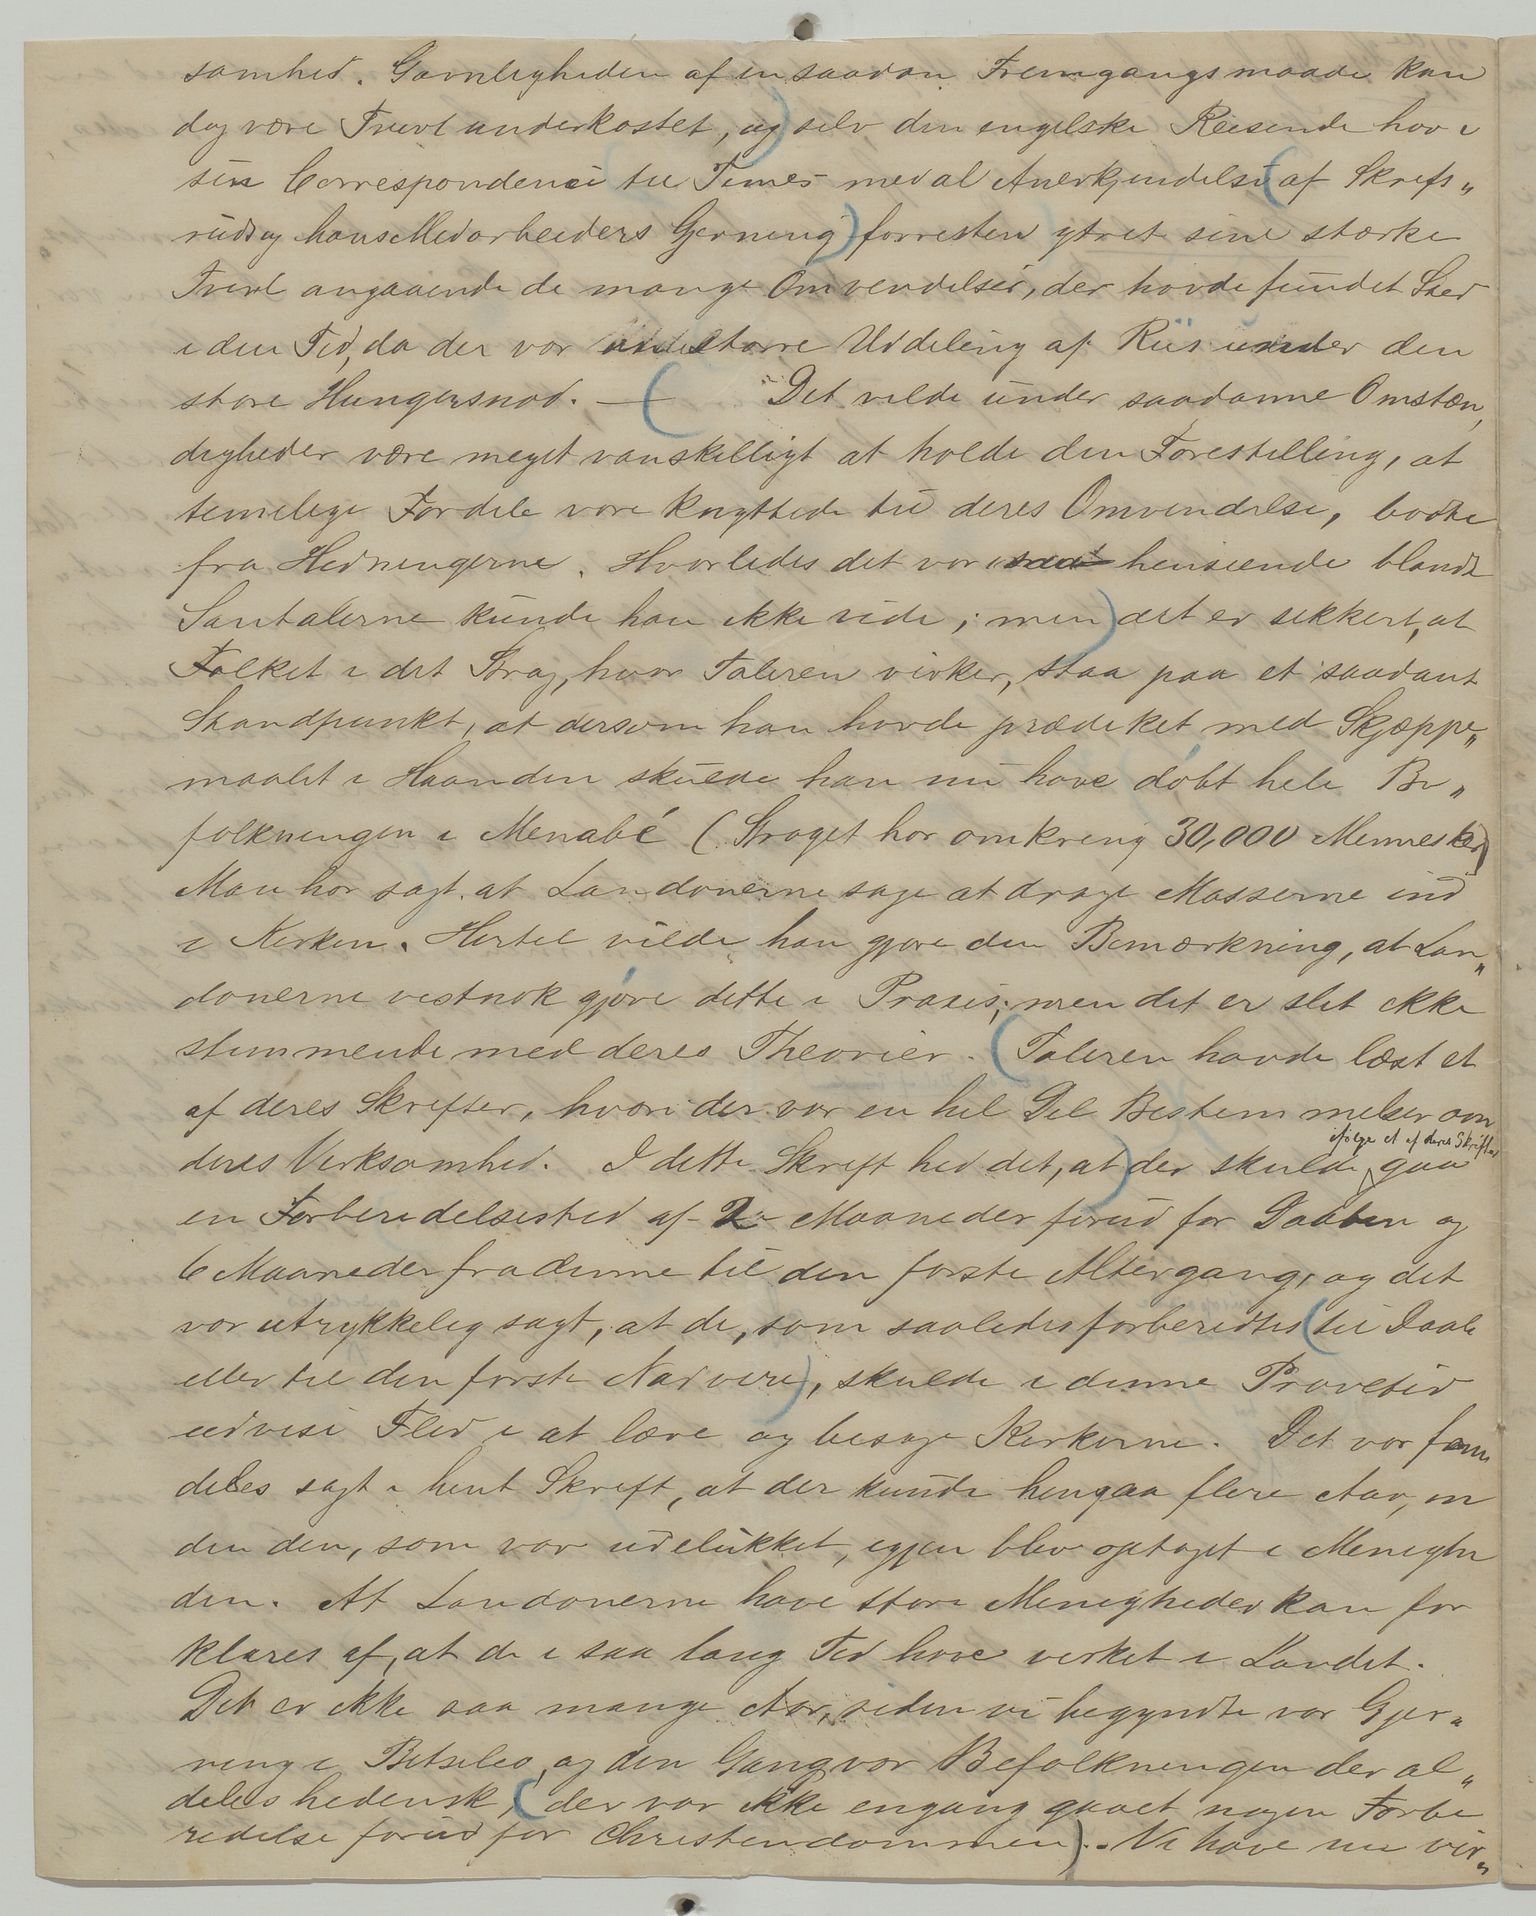 samhed. Gavnligheden af en saadan Fremgangsmaade kan
dog være Tvivl underkastet, og) selv den engelske Reisende har i
sin Correspondence til Times med al Anerkjendelse (af Skrefs„
ruds og hans Medarbeiders Gjerning) forresten ytret sine stærke
Tvivl angaaende de mange Omvendelser, der havde fundet Sted
i den Tid, da der var større Uddeling af Riis under den
store Hungersnød. — ( Det vilde under saadanne Omstæn„
digheder være meget vanskelligt at holde den Forestilling, at
timelige Fordele vare knyttede til deres Omvendelse, borte
fra Hedningerne. Hvorledes det var i saa henseende blandt
Santalerne kunde han ikke vide; men) det er sikkert, at
Folket i det Strøg, hvor Taleren virker, staa paa et saadant
Standpunkt, at dersom han havde prædiket med Skjæppe„
maalet i Haanden skulde han nu have døbt hele Be„
folkningen i Menabé (Strøget har omkring 30,000 Mennesker)
Man har sagt at Londonerne søge at drage Masserne ind
i Kirken. Hertil vilde han gjøre den Bemærkning, at Lon„
donerne vistnok gjøre dette i Praxis; men det er slet ikke
stemmende med deres Theorier. (Taleren havde læst et
af deres Skrifter, hvori der var en hel Del Bestemmelser om
ifølge et af deres Skrifter
deres Virksomhed. I dette Skrift hed det, at) der skulde gaa
en Forberedelsestid af 2 Maaneder forud for Daaben og
6 Maaneder fra denne til den første Altergang, og det
var utrykkelig sagt, at de, som saaledes forberedtes (til Daab
eller til den første Nadvere), skulde i denne Prøvetid
udvise Flid i at lære og besøge Kirkerne. Det var frem
deles sagt i hint Skrift, at der kunde hengaa flere Aar, in
den den, som var udelukket, igjen blev optaget i Menighe
den. At Londonerne have store Menigheder kan for
klares af, at de i saa lang Tid have virket i Landet.
Det er ikke saa mange Aar, siden vi begyndte vor Gjer„
ning i Betsileo, og den Gang var Befolkningen der al„
deles hedensk, (der var ikke engang gaaet nogen Forbe
redelse forud for Christendommen). Vi have nu vir„